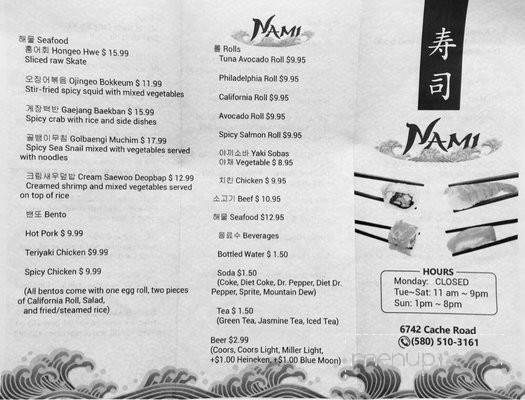 해물 Seafood
홍어회 Hongeo Hwe $ 15.99
Sliced raw Skate
오징어볶음 Ojingeo Bokkeum $ 11.99
Stir-fried spicy squid with mixed vegetables
게장백반 Gaejang Baekban $ 15.99
Spicy crab with rice and side dishes
골뱅이무침 Golbaengi Muchim $ 17.99
Spicy Sea Snail mixed with vegetables served
with noodles
크림새우덮밥 Cream Saewoo Deopbap $ 12.99
Creamed shrimp and mixed vegetables served
on top of rice
밴또 Bento
Hot Pork $ 9.99
Teriyaki Chicken $ 9.99
Spicy Chicken $ 9.99
(All bentos come with one egg roll, two pieces
of California Roll, Salad,
and fried/steamed rice)
NAMI
롤 Rolls
Tuna Avocado Roll $9.95
Philadelphia Roll $9.95
California Roll $9.95
Avocado Roll $9.95
Spicy Salmon Roll $9.95
야끼소바 Yaki Sobas
야채 Vegetable $ 8.95
치킨 Chicken $ 9.95
소고기 Beef $ 10.95
해물 Seafood $12.95
음료수 Beverages
Bottled Water $ 1.50
Soda $1.50
(Coke, Diet Coke, Dr. Pepper, Diet Dr.
Pepper, Sprite, Mountain Dew)
Tea $ 1.50
(Green Tea, Jasmine Tea, Iced Tea)
Beer $2.99
(Coors, Coors Light, Miller Light,
+$1.00 Heineken, +$1.00 Blue Moon)
寿司
NAMI
HOURS
Monday: CLOSED
Tue~Sat: 11 am ~ 9pm
Sun: 1pm ~ 8pm
6742 Cache Road
(580) 510-3161